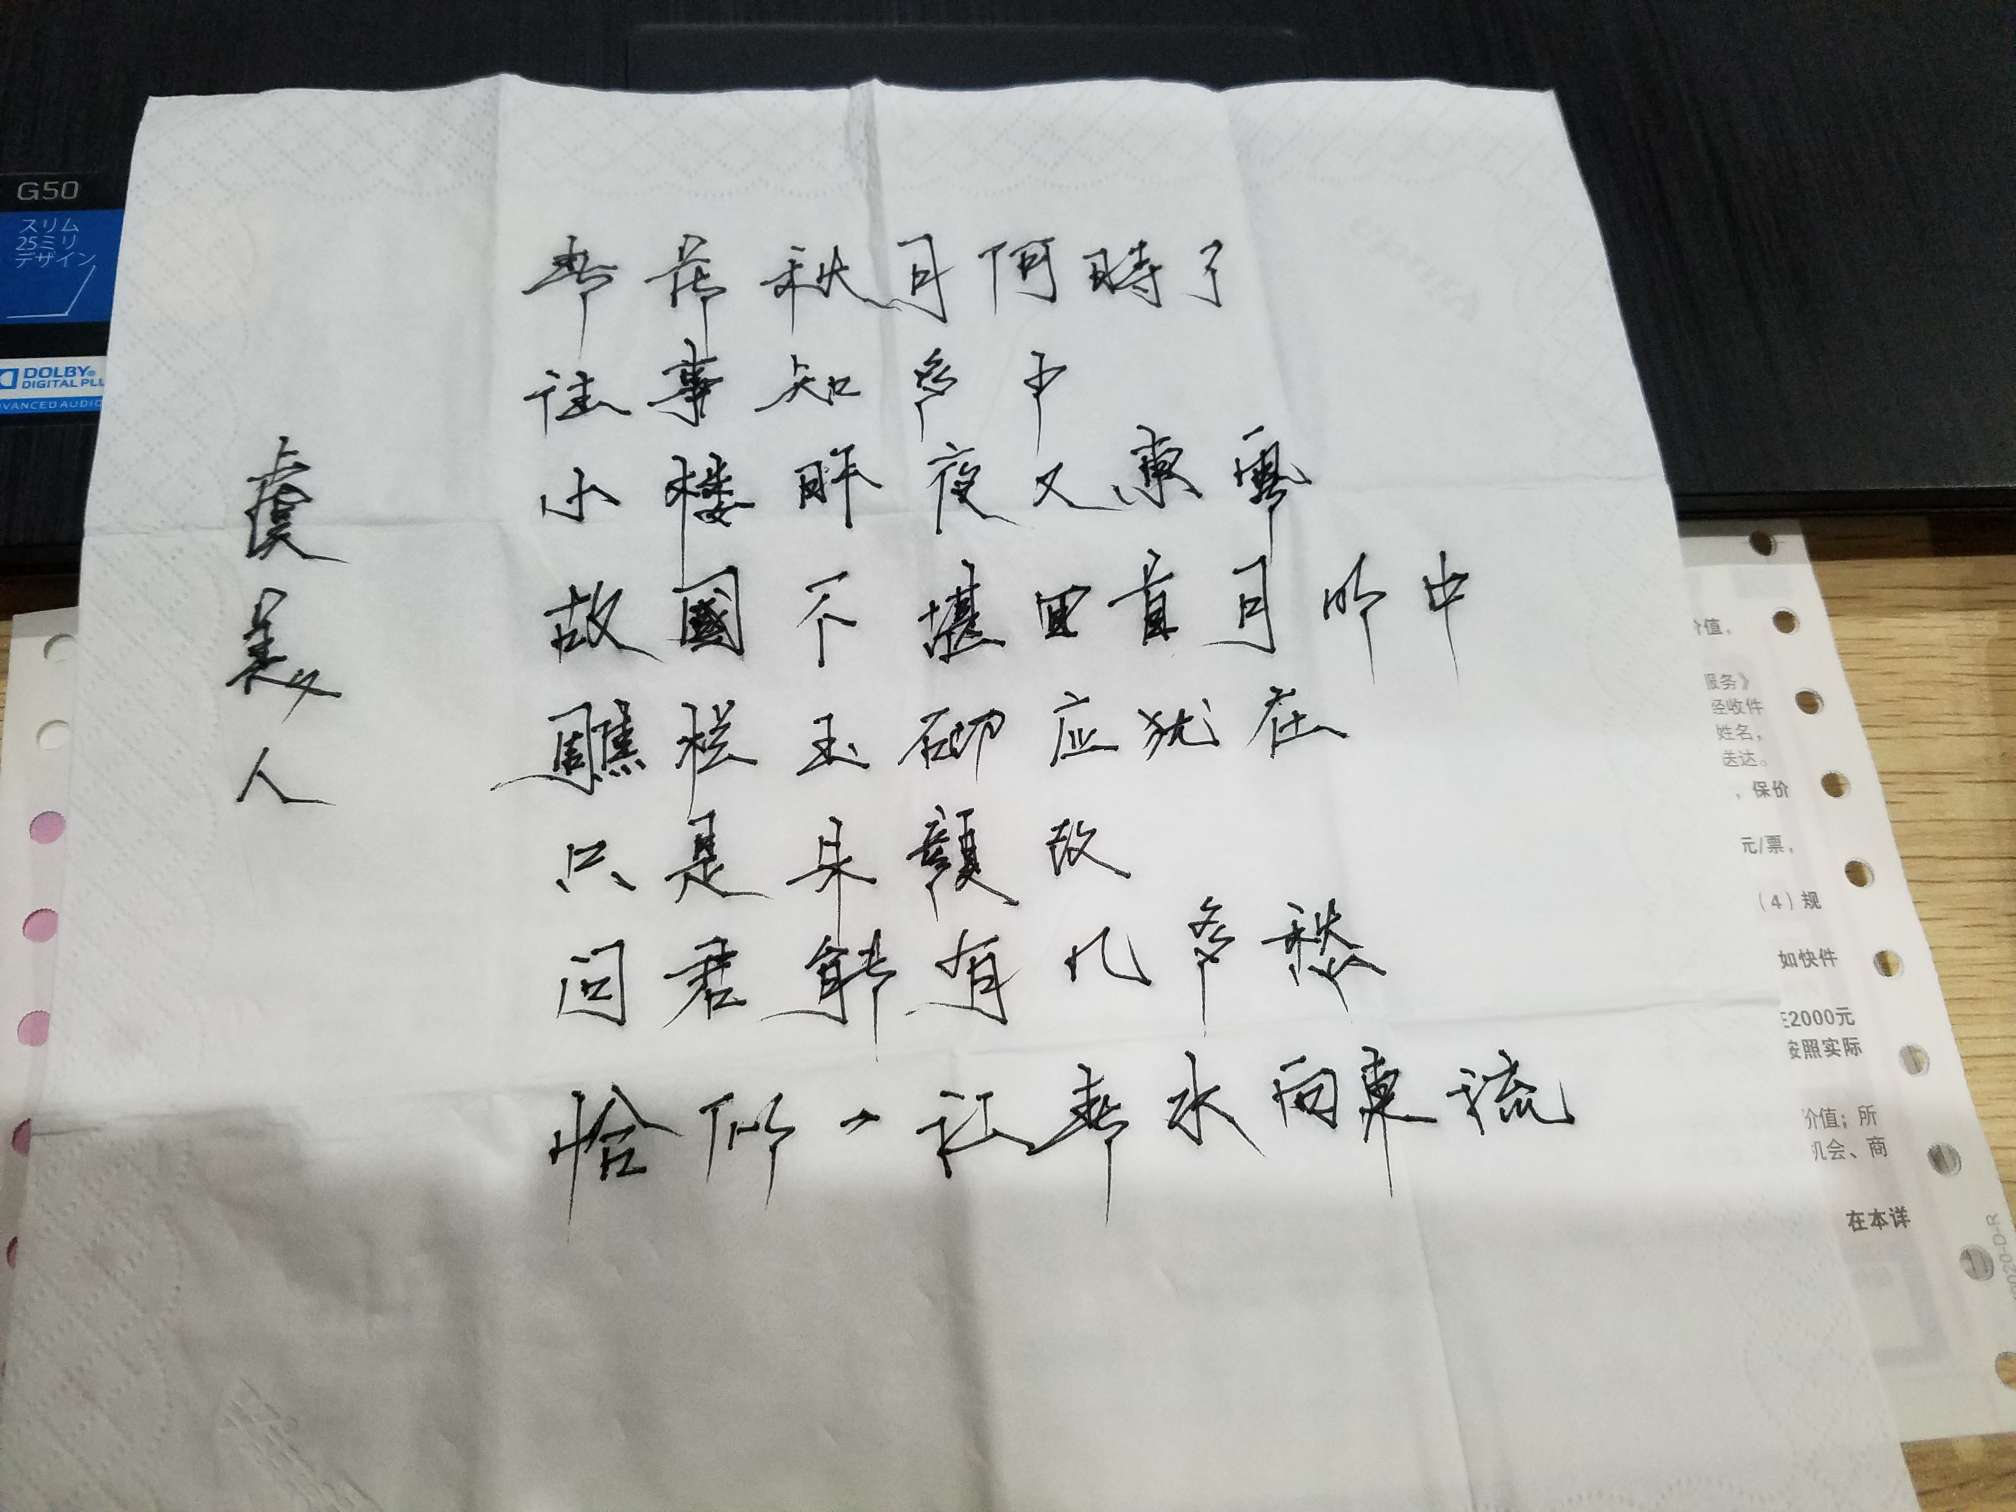 虞美人
春花秋月何時了
往事知多少
小楼昨夜又東風
故國不堪回首月明中
雕栏玉砌应犹在
只是朱顏改
问君能有几多愁
恰似一江春水向東流
G50
スリム
25ミリ
デザイン
DOLBY
DIGITAL PLU
ADVANCED AUDIO
价值，
服务》
经收件
姓名，
送达。
，保价
元/票，
（4）规
如快件
2000元
按照实际
价值；所
机会、商
在本详